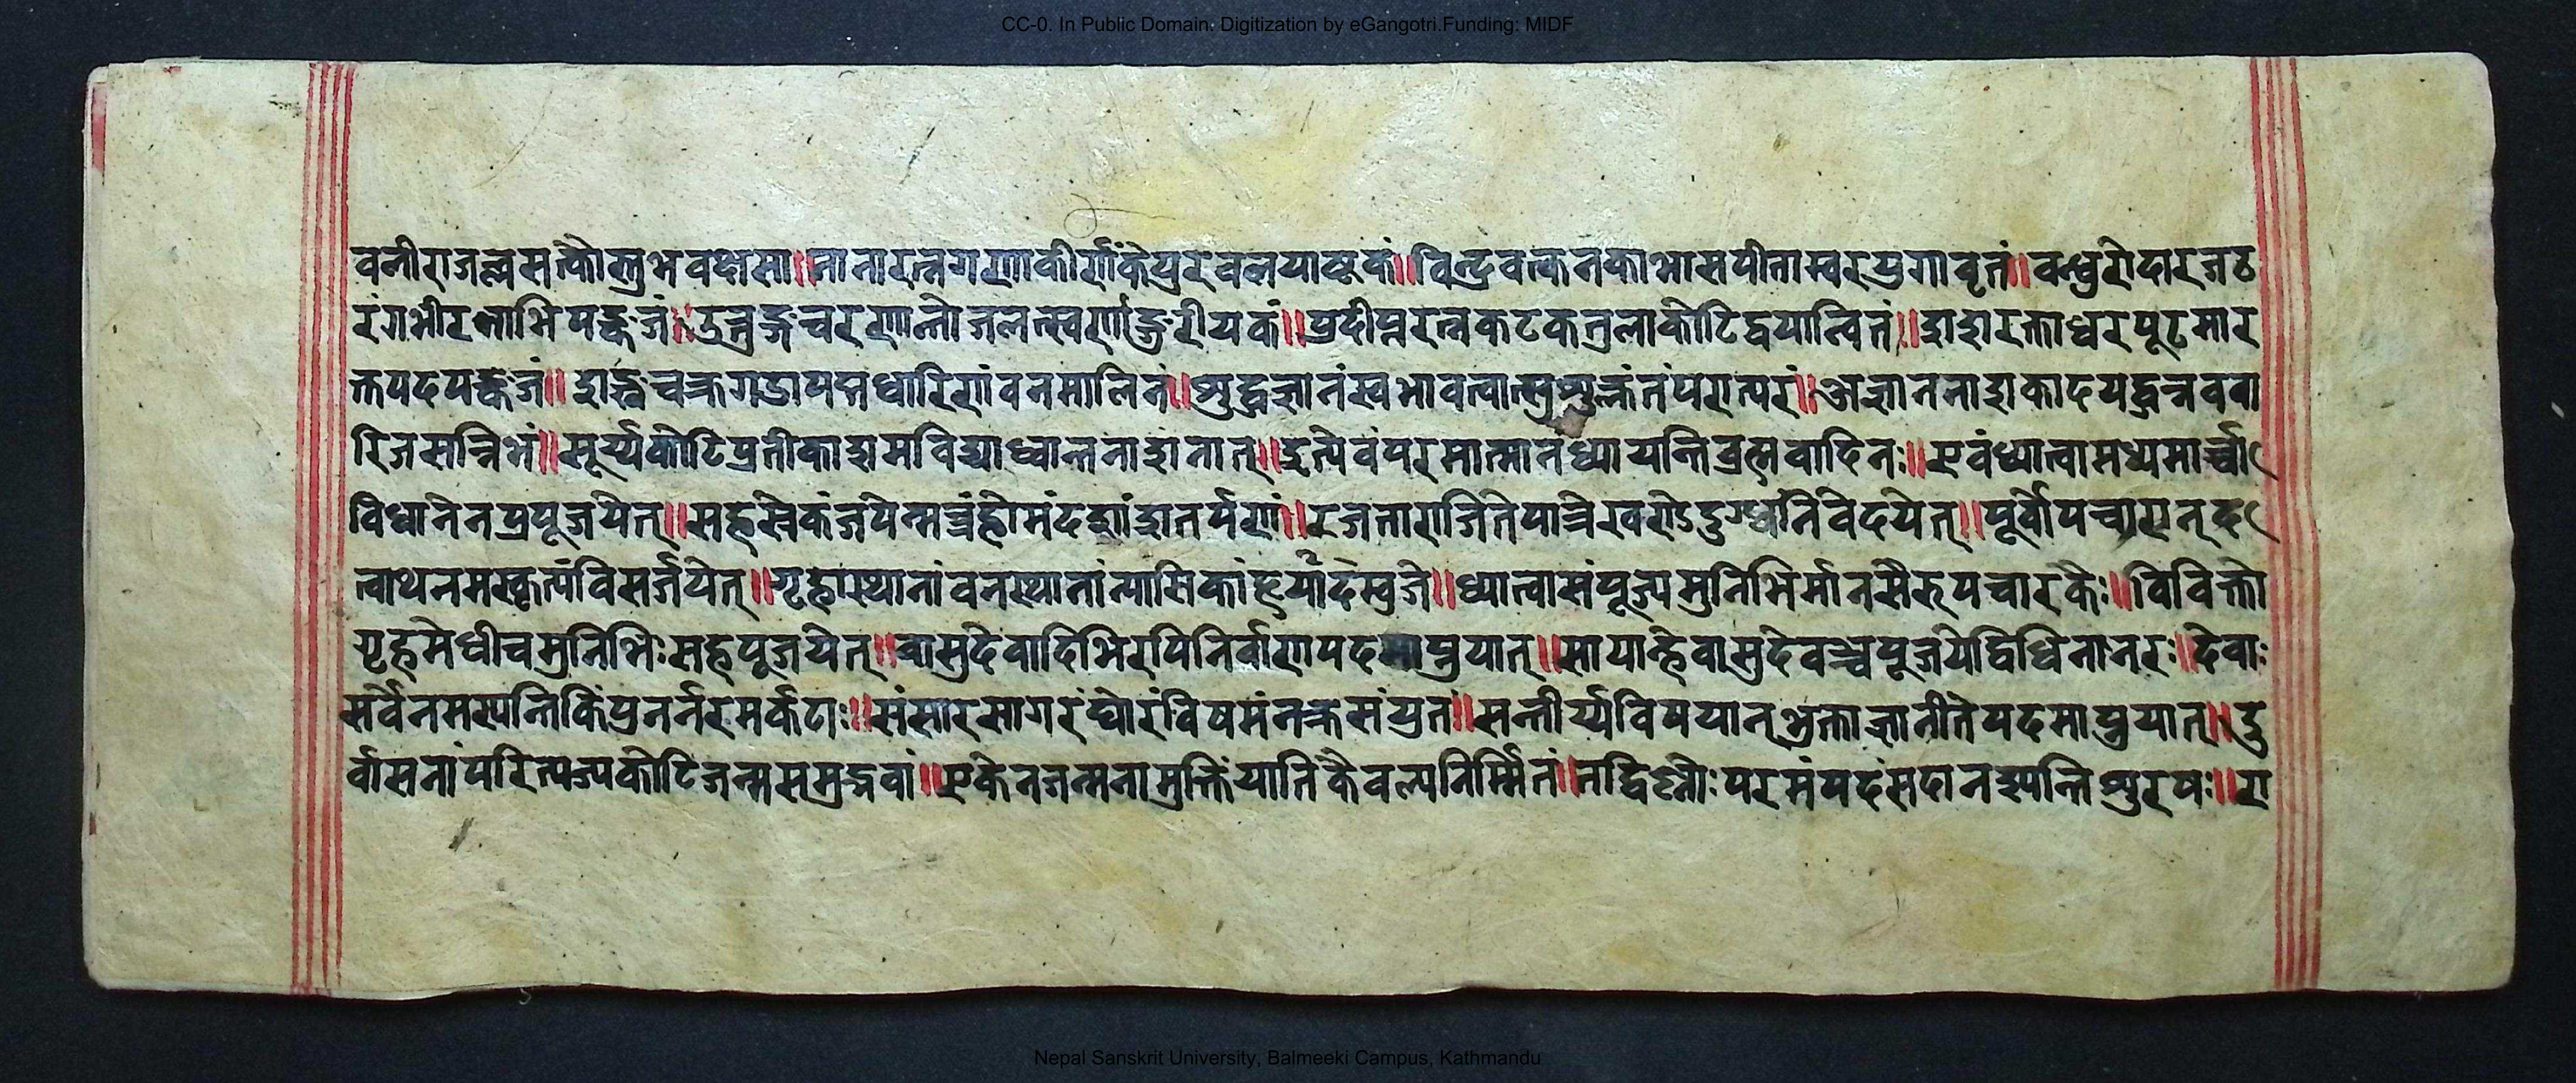 CC-0. In Public Domain. Digitization by eGangotri.Funding: MIDF
वलीराजल्लसत्कौस्तुभवक्षसा॥नानारत्नगणाकीर्णंकेयुरवलयाष्टकं॥विन्द्रवत्कनकाभासपीताम्वरयुगावृतं॥वन्धुरोदारजठ
रंगभीरनाभिपङ्कजं॥उन्नङ्गचरणान्तोजलत्स्वर्णाङ्गुरीयकं॥प्रदीप्तरत्नकटकतुलाकोटिद्वयान्वितं॥शशरक्ताधरपूटमार
क्तपदपङ्कजं॥शङ्खचक्रगडापद्मधारिणंवनमालिनं॥शुद्धज्ञानंस्वभावत्वात्सुशुक्लंतंपरात्परं॥अज्ञाननाशकादयद्घन्नववा
रिजसन्निभं॥सूर्य्यकोटिप्रतीकाशमविद्याध्वान्तनाशनात्॥इत्येवंपरमात्मानंध्यायन्तिब्रह्मवादिनः॥एवंध्यात्वामध्यमार्च्चा
विधानेनप्रपूजयेत्॥सहस्रैकंजपेन्मन्त्रंहोमंदशांशतर्पणं॥रजताराजितेपात्रेखण्डदुग्धंनिवेदयेत्॥पूर्वोपचारान्द
त्वाथनमस्कृत्यविसर्जयेत्॥गृहास्थानांवनस्थानांन्यासिकांहृर्यादम्वुजे॥ध्यात्वासंपूज्यमुनिभिर्मानसैरुपचारकैः॥विविक्तो
गृहमेधीचमुनिभिःसहपूजयेत्॥वासुदेवादिभिरपिनिर्वाणपदमाप्नुयात्॥सायान्हेवासुदेवञ्चपूजयेद्विधिनानरः॥देवाः
सर्वेनमस्यन्तिकिंपुनर्न्नरमर्कटाः॥संसारसागरंघोरंविषमंनक्रसंयुतं॥सन्तीर्य्यविषयान्भुक्ताज्ञानीतेपदमाप्नुयात्॥दु
र्वासनांपरित्यज्यकोटिजन्मसमुद्भवां॥एकेनजन्मनामुक्तिंयातिकैवल्यनिर्म्मितं॥तद्विष्णोःपरमंपदंसदानश्यन्तिशुरषः॥रा
Nepal Sanskrit University, Balmeeki Campus, Kathmandu